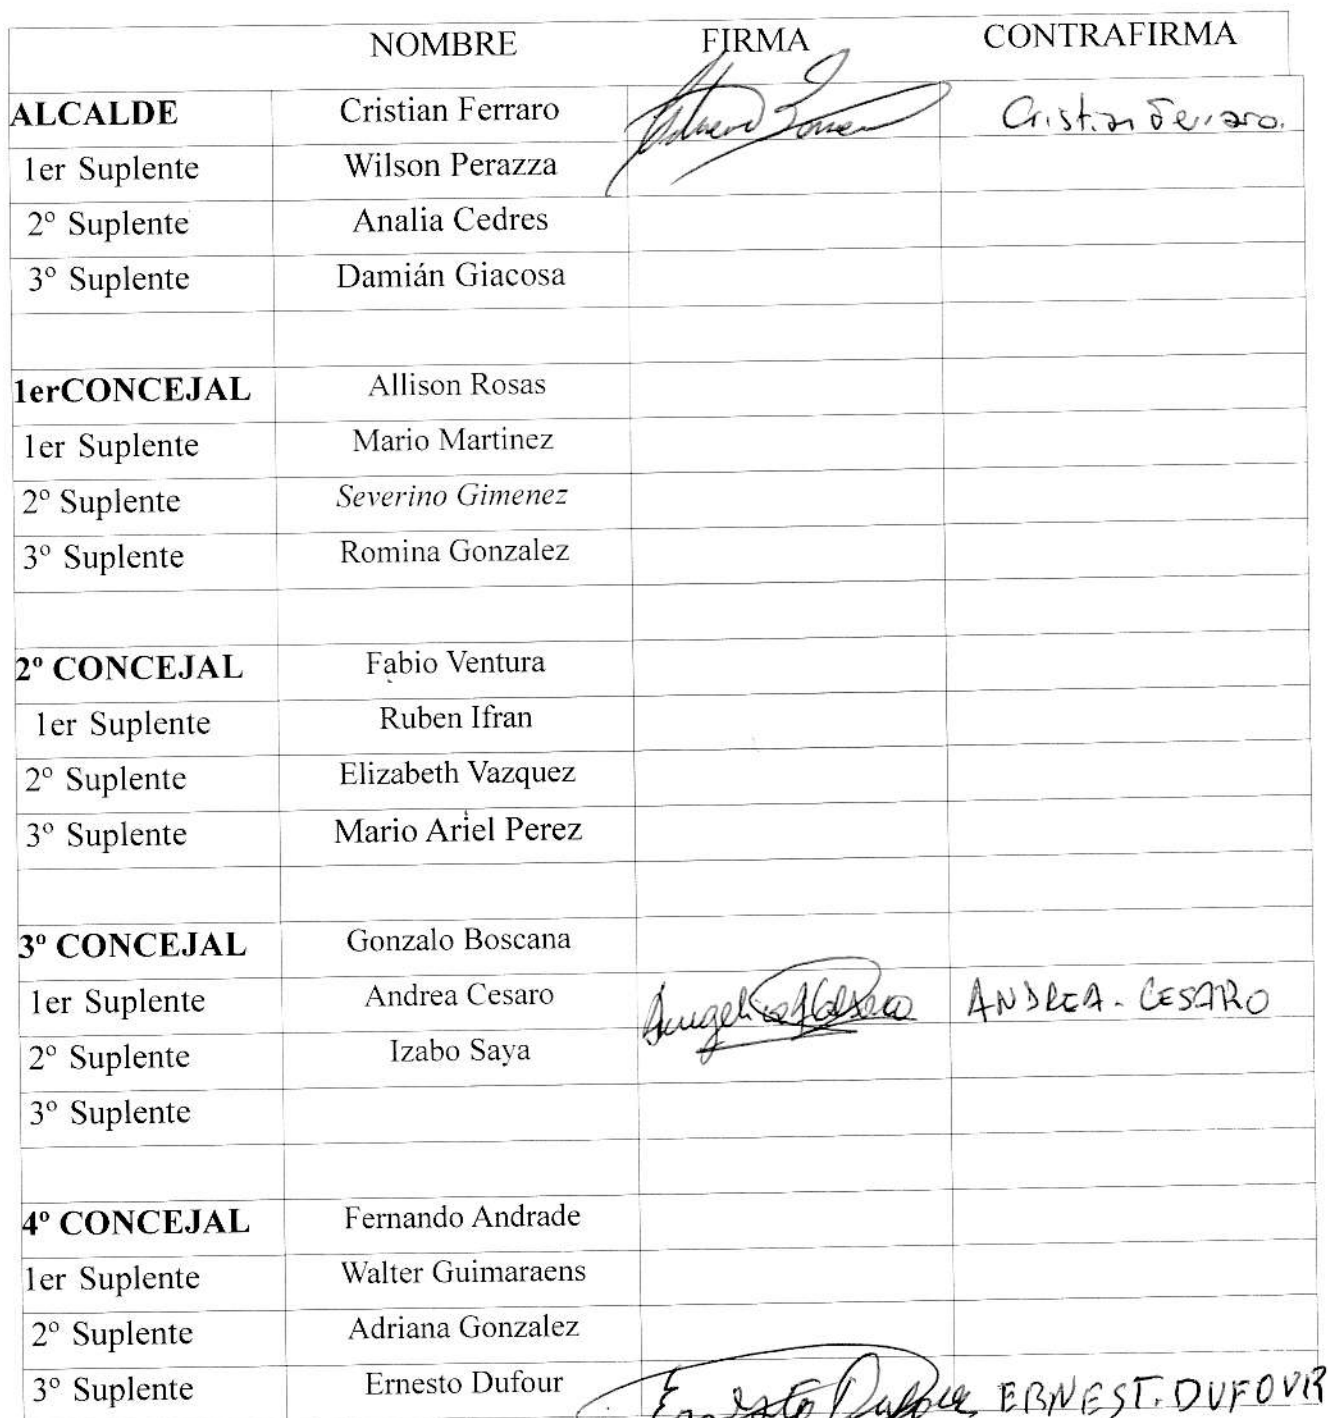 NOMBRE FIRMA CONTRAFIRMA
ALCALDE Cristian Ferraro Cristian Ferraro.
1er Suplente Wilson Perazza
2º Suplente Analia Cedres
3º Suplente Damián Giacosa
1erCONCEJAL Allison Rosas
1er Suplente Mario Martinez
2º Suplente Severino Gimenez
3º Suplente Romina Gonzalez
2º CONCEJAL Fabio Ventura
1er Suplente Ruben Ifran
2º Suplente Elizabeth Vazquez
3º Suplente Mario Ariel Perez
3º CONCEJAL Gonzalo Boscana
1er Suplente Andrea Cesaro ANDREA - CESARO
2º Suplente Izabo Saya
3º Suplente
4º CONCEJAL Fernando Andrade
1er Suplente Walter Guimaraens
2º Suplente Adriana Gonzalez
3º Suplente Ernesto Dufour Ernesto Dufour ERNEST. DUFOUR